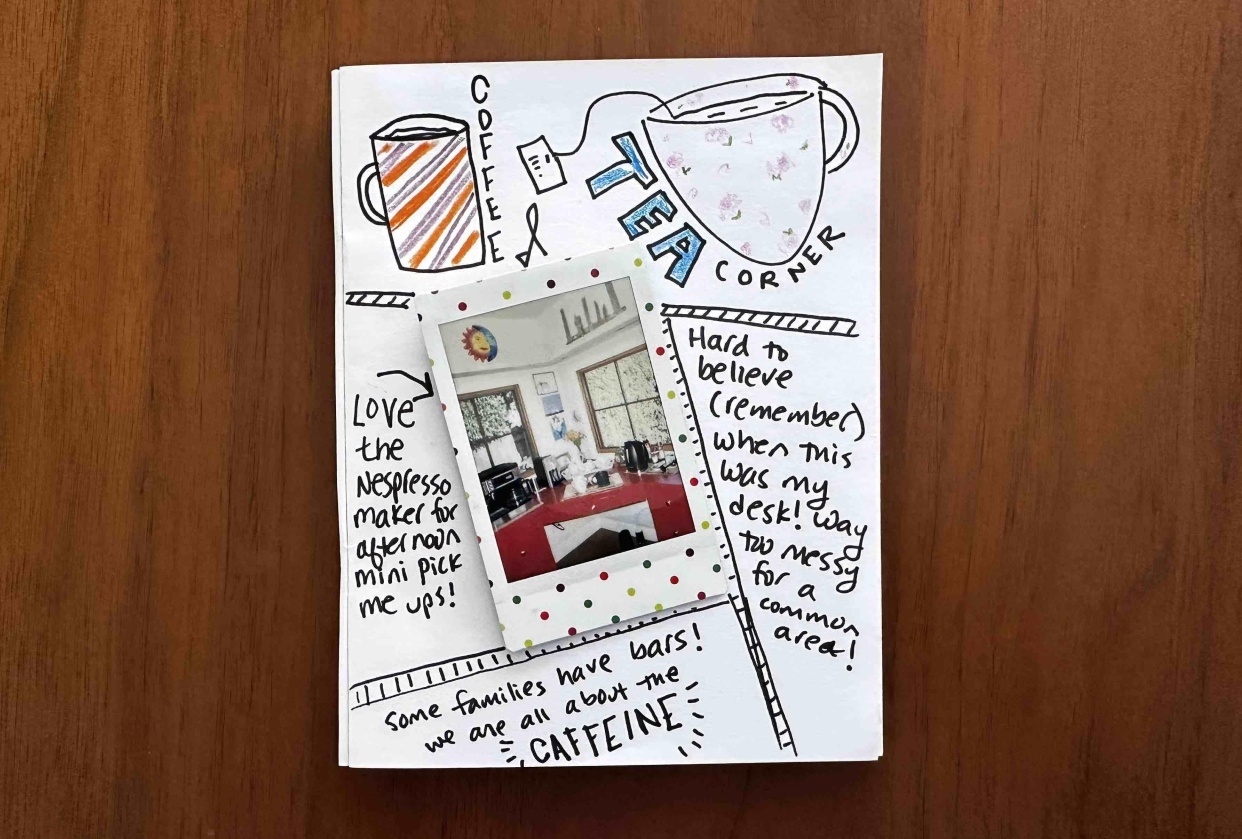 COFFEE
&
TEA
CORNER
LOVE
the
Nespresso
maker for
afternoon
mini pick
me ups!
Hard to
believe
(remember)
when this
was my
desk! Way
too messy
for a
common
area!
Some families have bars!
we are all about the
CAFFEINE